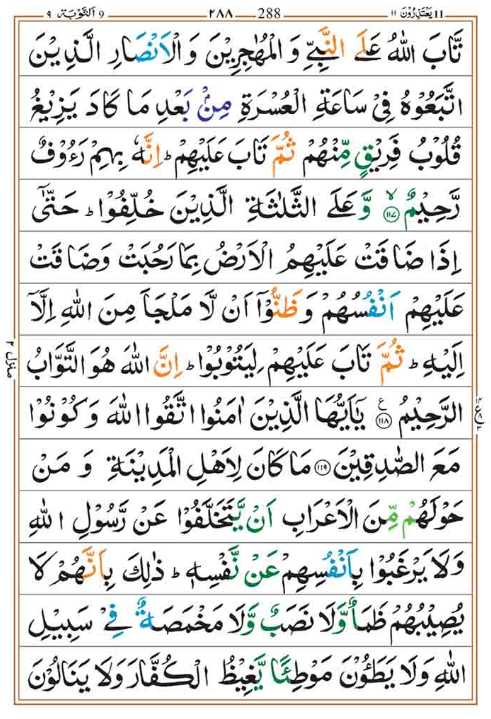 ۱۱ یَعْتَذِرُوْنَ 11 ۲۸۸ 288 9 اَلتَّوْبَة ۹
تَّابَ اللّٰهُ عَلَى النَّبِيِّ وَ الْمُهٰجِرِيْنَ وَ الْاَنْصَارِ الَّذِيْنَ
اتَّبَعُوْهُ فِيْ سَاعَةِ الْعُسْرَةِ مِنْۢ بَعْدِ مَا كَادَ يَزِيْغُ
قُلُوْبُ فَرِيْقٍ مِّنْهُمْ ثُمَّ تَابَ عَلَيْهِمْ ؕ اِنَّهٗ بِهِمْ رَءُوْفٌ
رَّحِيْمٌ ۙ‏﴿۱۱۷﴾ وَّ عَلَى الثَّلٰثَةِ الَّذِيْنَ خُلِّفُوْا ؕ حَتّٰۤى
اِذَا ضَاقَتْ عَلَيْهِمُ الْاَرْضُ بِمَا رَحُبَتْ وَ ضَاقَتْ
عَلَيْهِمْ اَنْفُسُهُمْ وَ ظَنُّوْۤا اَنْ لَّا مَلْجَاَ مِنَ اللّٰهِ اِلَّاۤ
اِلَيْهِ ؕ ثُمَّ تَابَ عَلَيْهِمْ لِيَتُوْبُوْا ؕ اِنَّ اللّٰهَ هُوَ التَّوَّابُ
الرَّحِيْمُ ﴿۱۱۸﴾ ع يٰۤاَيُّهَا الَّذِيْنَ اٰمَنُوا اتَّقُوا اللّٰهَ وَ كُوْنُوْا
مَعَ الصّٰدِقِيْنَ ﴿۱۱۹﴾ مَا كَانَ لِاَهْلِ الْمَدِيْنَةِ وَ مَنْ
حَوْلَهُمْ مِّنَ الْاَعْرَابِ اَنْ يَّتَخَلَّفُوْا عَنْ رَّسُوْلِ اللّٰهِ
وَ لَا يَرْغَبُوْا بِاَنْفُسِهِمْ عَنْ نَّفْسِهٖ ؕ ذٰلِكَ بِاَنَّهُمْ لَا
يُصِيْبُهُمْ ظَمَاٌ وَّ لَا نَصَبٌ وَّ لَا مَخْمَصَةٌ فِيْ سَبِيْلِ
اللّٰهِ وَ لَا يَطَـُٔوْنَ مَوْطِئًا يَّغِيْظُ الْكُفَّارَ وَ لَا يَنَالُوْنَ
منزل ۲